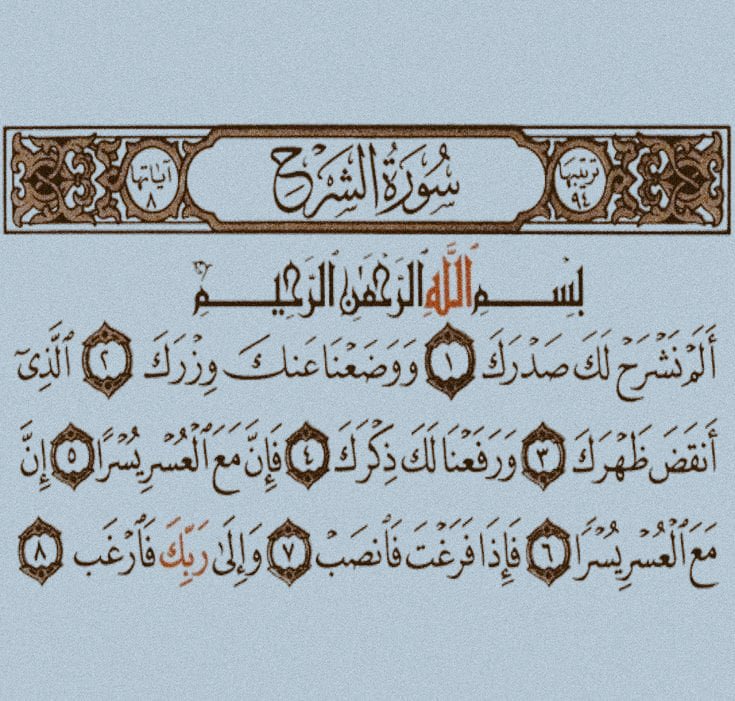 ترتيبها ٩٤ سُورَةُ الشَّرْحِ آياتها ٨
بِسْمِ ٱللَّهِ ٱلرَّحْمَٰنِ ٱلرَّحِيمِ
أَلَمْ نَشْرَحْ لَكَ صَدْرَكَ ١ وَوَضَعْنَا عَنكَ وِزْرَكَ ٢ ٱلَّذِىٓ
أَنقَضَ ظَهْرَكَ ٣ وَرَفَعْنَا لَكَ ذِكْرَكَ ٤ فَإِنَّ مَعَ ٱلْعُسْرِ يُسْرًا ٥ إِنَّ
مَعَ ٱلْعُسْرِ يُسْرًا ٦ فَإِذَا فَرَغْتَ فَٱنصَبْ ٧ وَإِلَىٰ رَبِّكَ فَٱرْغَب ٨